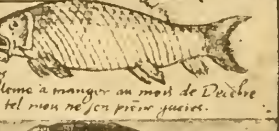 à manger au mois de Decēbre
tel mou ne s'en prēne gueres.